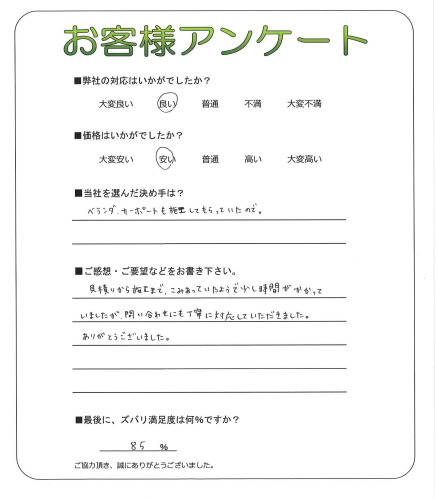 お客様アンケート
■弊社の対応はいかがでしたか？
大変良い 良い 普通 不満 大変不満
■価格はいかがでしたか？
大変安い 安い 普通 高い 大変高い
■当社を選んだ決め手は？
ベランダ、カーポートも施工してもらっていたので。
■ご感想・ご要望などをお書き下さい。
見積りから施工まで、こみあっていたようで少し時間がかかって
いましたが、問い合わせにも丁寧に対応していただきました。
ありがとうございました。
■最後に、ズバリ満足度は何％ですか？
85 ％
ご協力頂き、誠にありがとうございました。